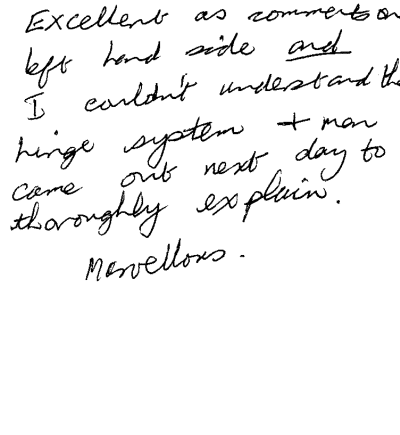 Excellent as comments on
left hand side and
I couldn't understand the
hinge system + man
came out next day to
thoroughly explain.
Marvellous.